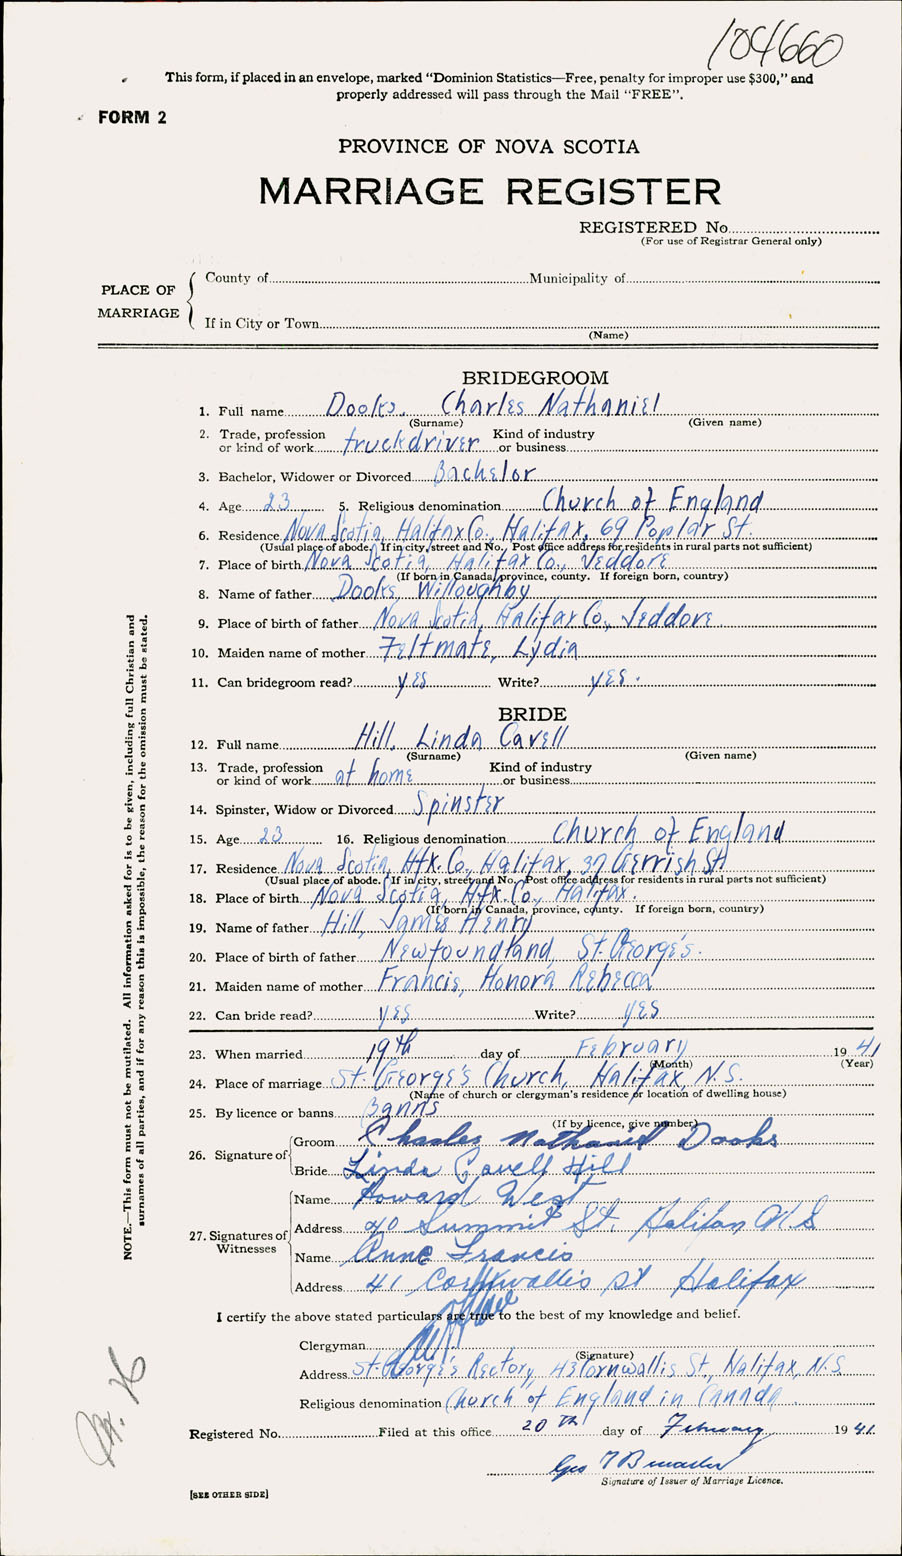 104660
This form, if placed in an envelope, marked “Dominion Statistics—Free, penalty for improper use $300,” and
properly addressed will pass through the Mail “FREE”.
FORM 2
PROVINCE OF NOVA SCOTIA
MARRIAGE REGISTER
REGISTERED No
(For use of Registrar General only)
PLACE OF MARRIAGE
County of Municipality of
If in City or Town
(Name)
BRIDEGROOM
1. Full name Dooks, Charles Nathaniel
(Surname) (Given name)
2. Trade, profession or kind of work truckdriver Kind of industry or business
3. Bachelor, Widower or Divorced Bachelor
4. Age 23 5. Religious denomination Church of England
6. Residence Nova Scotia, Halifax Co., Halifax, 69 Poplar St.
(Usual place of abode. If in city, street and No. Post office address for residents in rural parts not sufficient)
7. Place of birth Nova Scotia, Halifax Co., Jeddore
(If born in Canada, province, county. If foreign born, country)
8. Name of father Dooks, Willoughby
9. Place of birth of father Nova Scotia, Halifax Co., Jeddore
10. Maiden name of mother Feltmate, Lydia
11. Can bridegroom read? yes Write? yes.
BRIDE
12. Full name Hill, Linda Cavell
(Surname) (Given name)
13. Trade, profession or kind of work at home Kind of industry or business
14. Spinster, Widow or Divorced Spinster
15. Age 23 16. Religious denomination Church of England
17. Residence Nova Scotia, Hfx. Co., Halifax, 37 Gerrish St
(Usual place of abode. If in city, street and No. Post office address for residents in rural parts not sufficient)
18. Place of birth Nova Scotia, Hfx. Co., Halifax.
(If born in Canada, province, county. If foreign born, country)
19. Name of father Hill, James Henry
20. Place of birth of father Newfoundland, St. George's.
21. Maiden name of mother Francis, Honora Rebecca
22. Can bride read? yes Write? yes
23. When married 19th day of February 1941
(Month) (Year)
24. Place of marriage St. George's Church, Halifax, N.S.
(Name of church or clergyman's residence or location of dwelling house)
25. By licence or banns Banns
(If by licence, give number)
26. Signature of Groom Charles Nathaniel Dooks
Bride Linda Cavell Hill
27. Signatures of Witnesses
Name Howard West
Address 40 Summit St. Halifax N.S
Name Anne Francis
Address 41 Cornwallis St Halifax
I certify the above stated particulars are true to the best of my knowledge and belief.
Clergyman
(Signature)
Address St. George's Rectory, 43 Cornwallis St., Halifax, N.S.
Religious denomination Church of England in Canada.
Registered No. Filed at this office 20th day of February 1941.
Geo
Signature of Issuer of Marriage Licence.
[SEE OTHER SIDE]
NOTE.—This form must not be mutilated. All information asked for is to be given, including full Christian and
surnames of all parties, and if for any reason this is impossible, the reason for the omission must be stated.